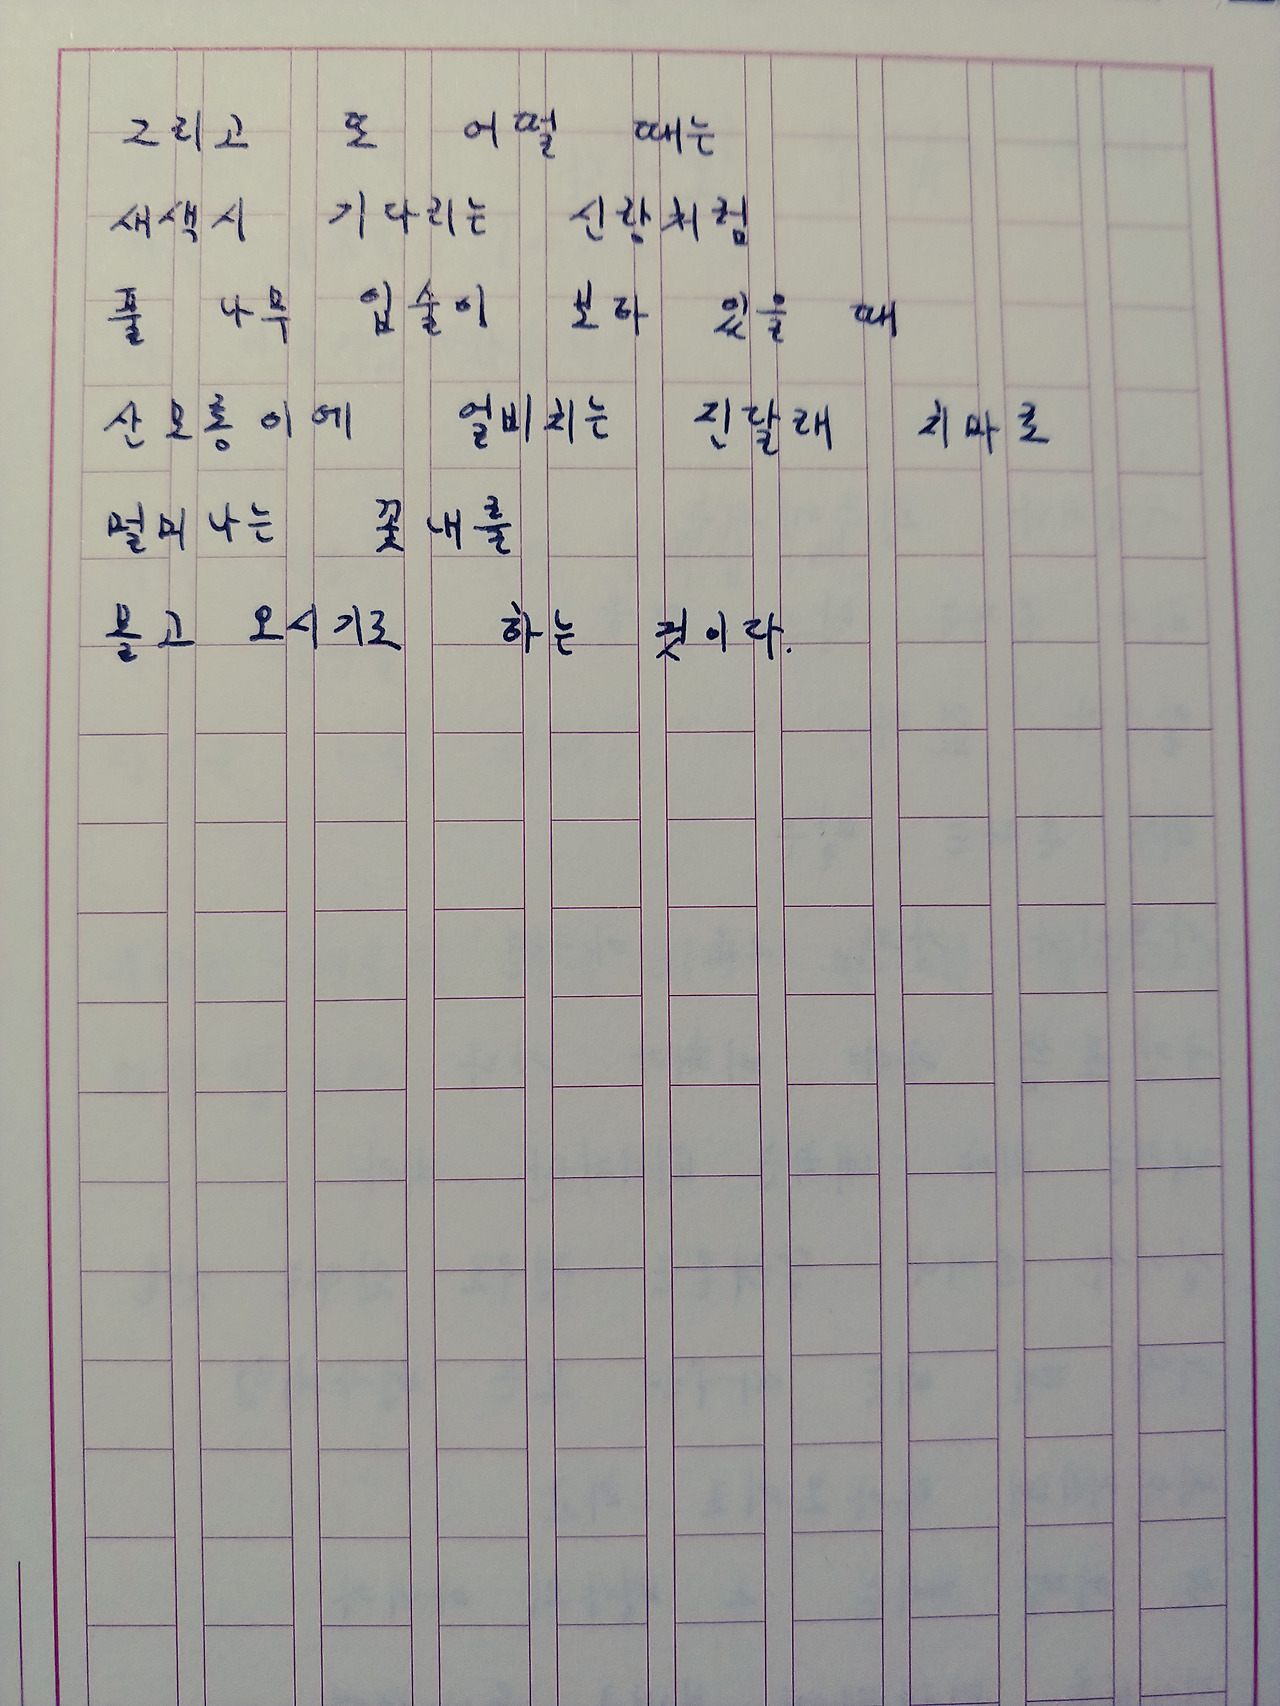 그리고 또 어떨 때는
새색시 기다리는 신랑처럼
풀 나무 입술이 보라 있을 때
산모롱이에 얼비치는 진달래 치마로
멀미나는 꽃내를
몰고 오시기로 하는 것이다.